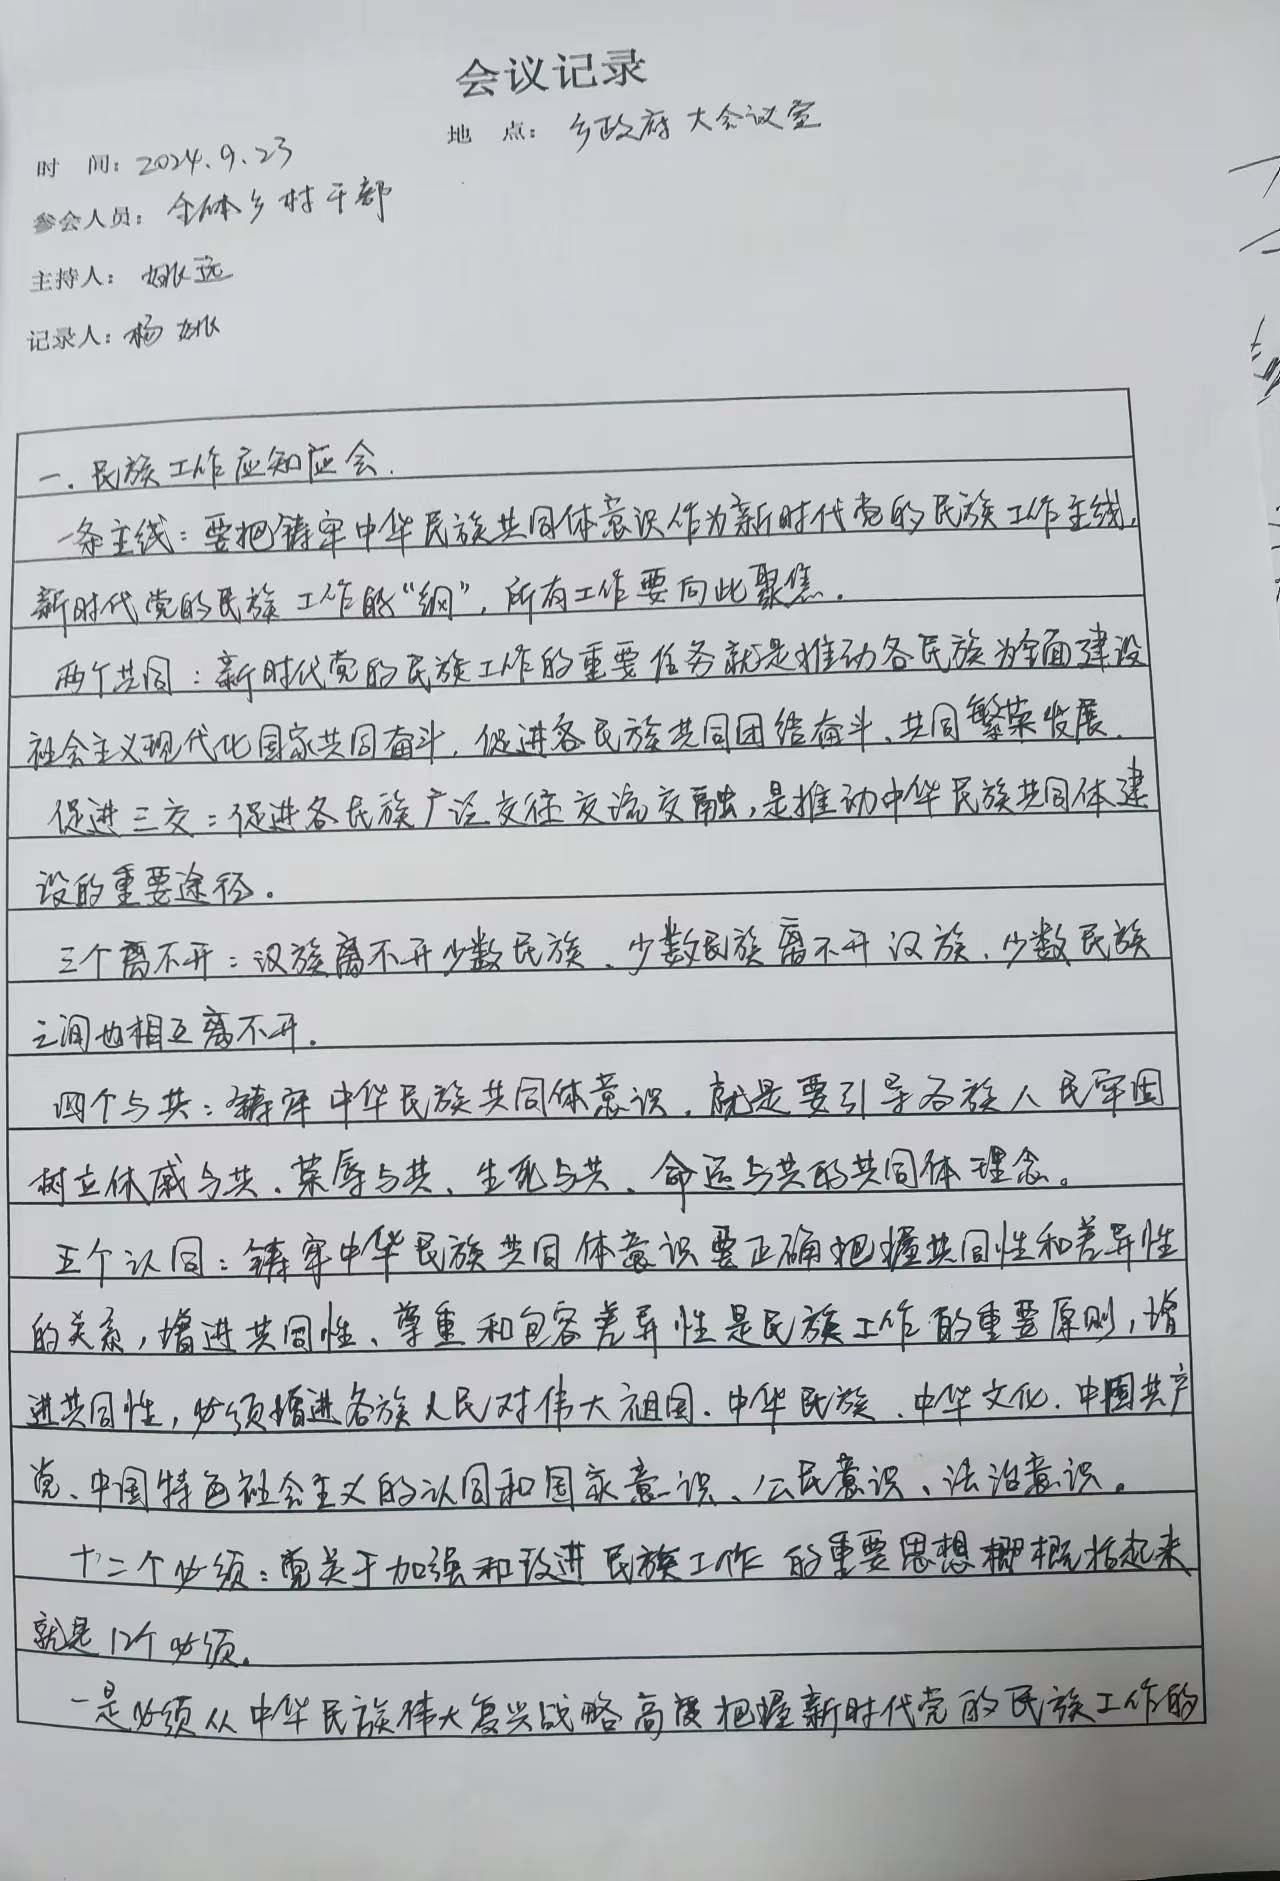 会议记录
时 间：2024.9.23 地 点：乡政府大会议室
参会人员：全体乡村干部
主持人：姚远
记录人：杨姚
一.民族工作应知应会.
一条主线：要把铸牢中华民族共同体意识作为新时代党的民族工作主线，
新时代党的民族工作的“纲”，所有工作要向此聚焦。
两个共同：新时代党的民族工作的重要任务就是推动各民族为全面建设
社会主义现代化国家共同奋斗，促进各民族共同团结奋斗、共同繁荣发展.
促进三交：促进各民族广泛交往交流交融，是推动中华民族共同体建
设的重要途径。
三个离不开：汉族离不开少数民族、少数民族离不开汉族、少数民族
之间也相互离不开.
四个与共：铸牢中华民族共同体意识，就是要引导各族人民牢固
树立休戚与共、荣辱与共、生死与共、命运与共的共同体理念。
五个认同：铸牢中华民族共同体意识要正确把握共同性和差异性
的关系，增进共同性、尊重和包容差异性是民族工作的重要原则，增
进共同性，必须增进各族人民对伟大祖国.中华民族、中华文化.中国共产
党、中国特色社会主义的认同和国家意识、公民意识、法治意识。
十二个必须：党关于加强和改进民族工作的重要思想概括起来
就是12个必须.
一是必须从中华民族伟大复兴战略高度把握新时代党的民族工作的